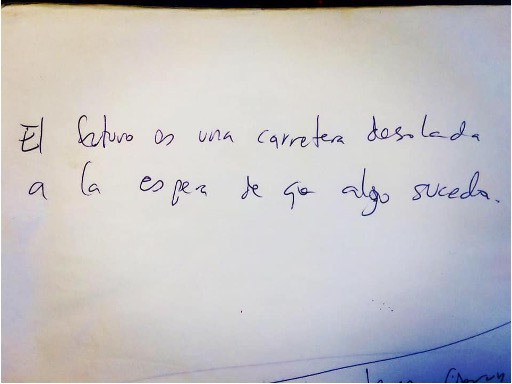 El futuro es una carretera desolada
a la espera de qe algo suceda.